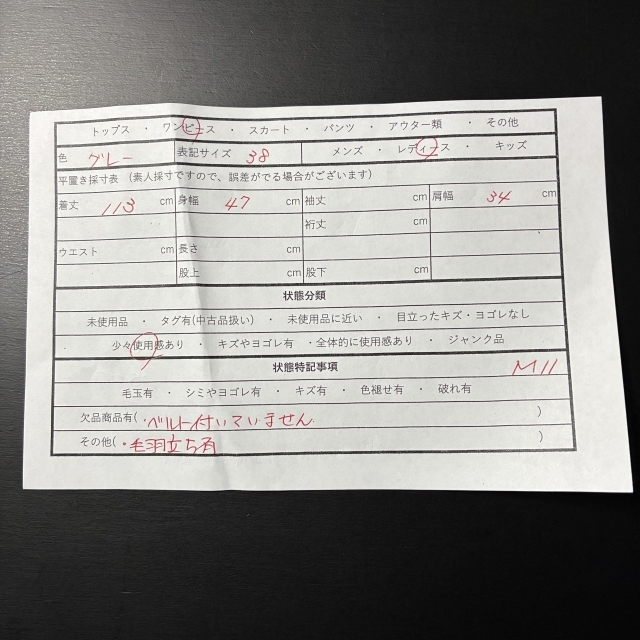 トップス ・ ワンピース ・ スカート ・ パンツ ・ アウター類 ・ その他
色 グレー 表記サイズ 38 メンズ ・ レディース ・ キッズ
平置き採寸表 (素人採寸ですので、誤差がでる場合がございます)
着丈 113 cm 身幅 47 cm 袖丈 cm 肩幅 34 cm
裄丈 cm
ウエスト cm 長さ cm
股上 cm 股下 cm
状態分類
未使用品 ・ タグ有(中古品扱い) ・ 未使用品に近い ・ 目立ったキズ・ヨゴレなし
少々使用感あり ・ キズやヨゴレ有 ・全体的に使用感あり ・ ジャンク品
状態特記事項 M11
毛玉有 ・ シミやヨゴレ有 ・ キズ有 ・ 色褪せ有 ・ 破れ有
欠品商品有( ・ベルト付いていません )
その他( ・毛羽立ち有 )